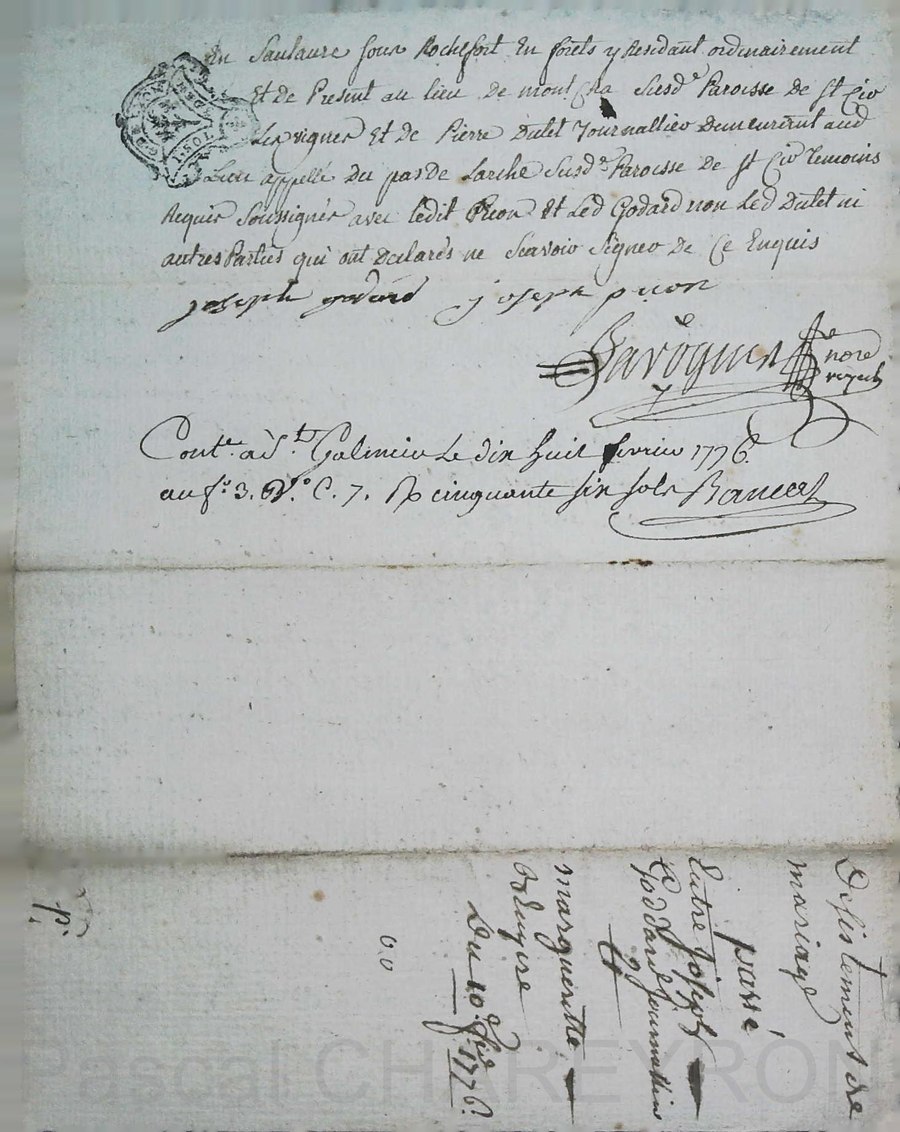 en Sauvure sous Rochefort En forets y Residant ordinairement
Et de Present au lieu de mont Cha Susd.e Paroisse de St Cir
Les vignes Et de Pierre Dutet Journallier Demeurant aud
Lieu appellé Du pas de Larche Susd.e Paroisse de St Cir temoins
Requis Soussignés avec Ledit Prion Et Led Godard non Led Dutet ni
autres Parties qui ont Declarés ne Scavoir Signer de Ce Enquis
joseph godard joseph prion
nore
royal
Cont.e a St. Galmier Le dix huit fevrier 1776
au f.o 3. V.o C. 7. R cinquante six sols
Desistement de
mariage
passé
Entre Joseph
Goddard Journallier
Et
margueritte
Bruyere
Du 10.e fev.r 1776.
Pascal CHAREYRON